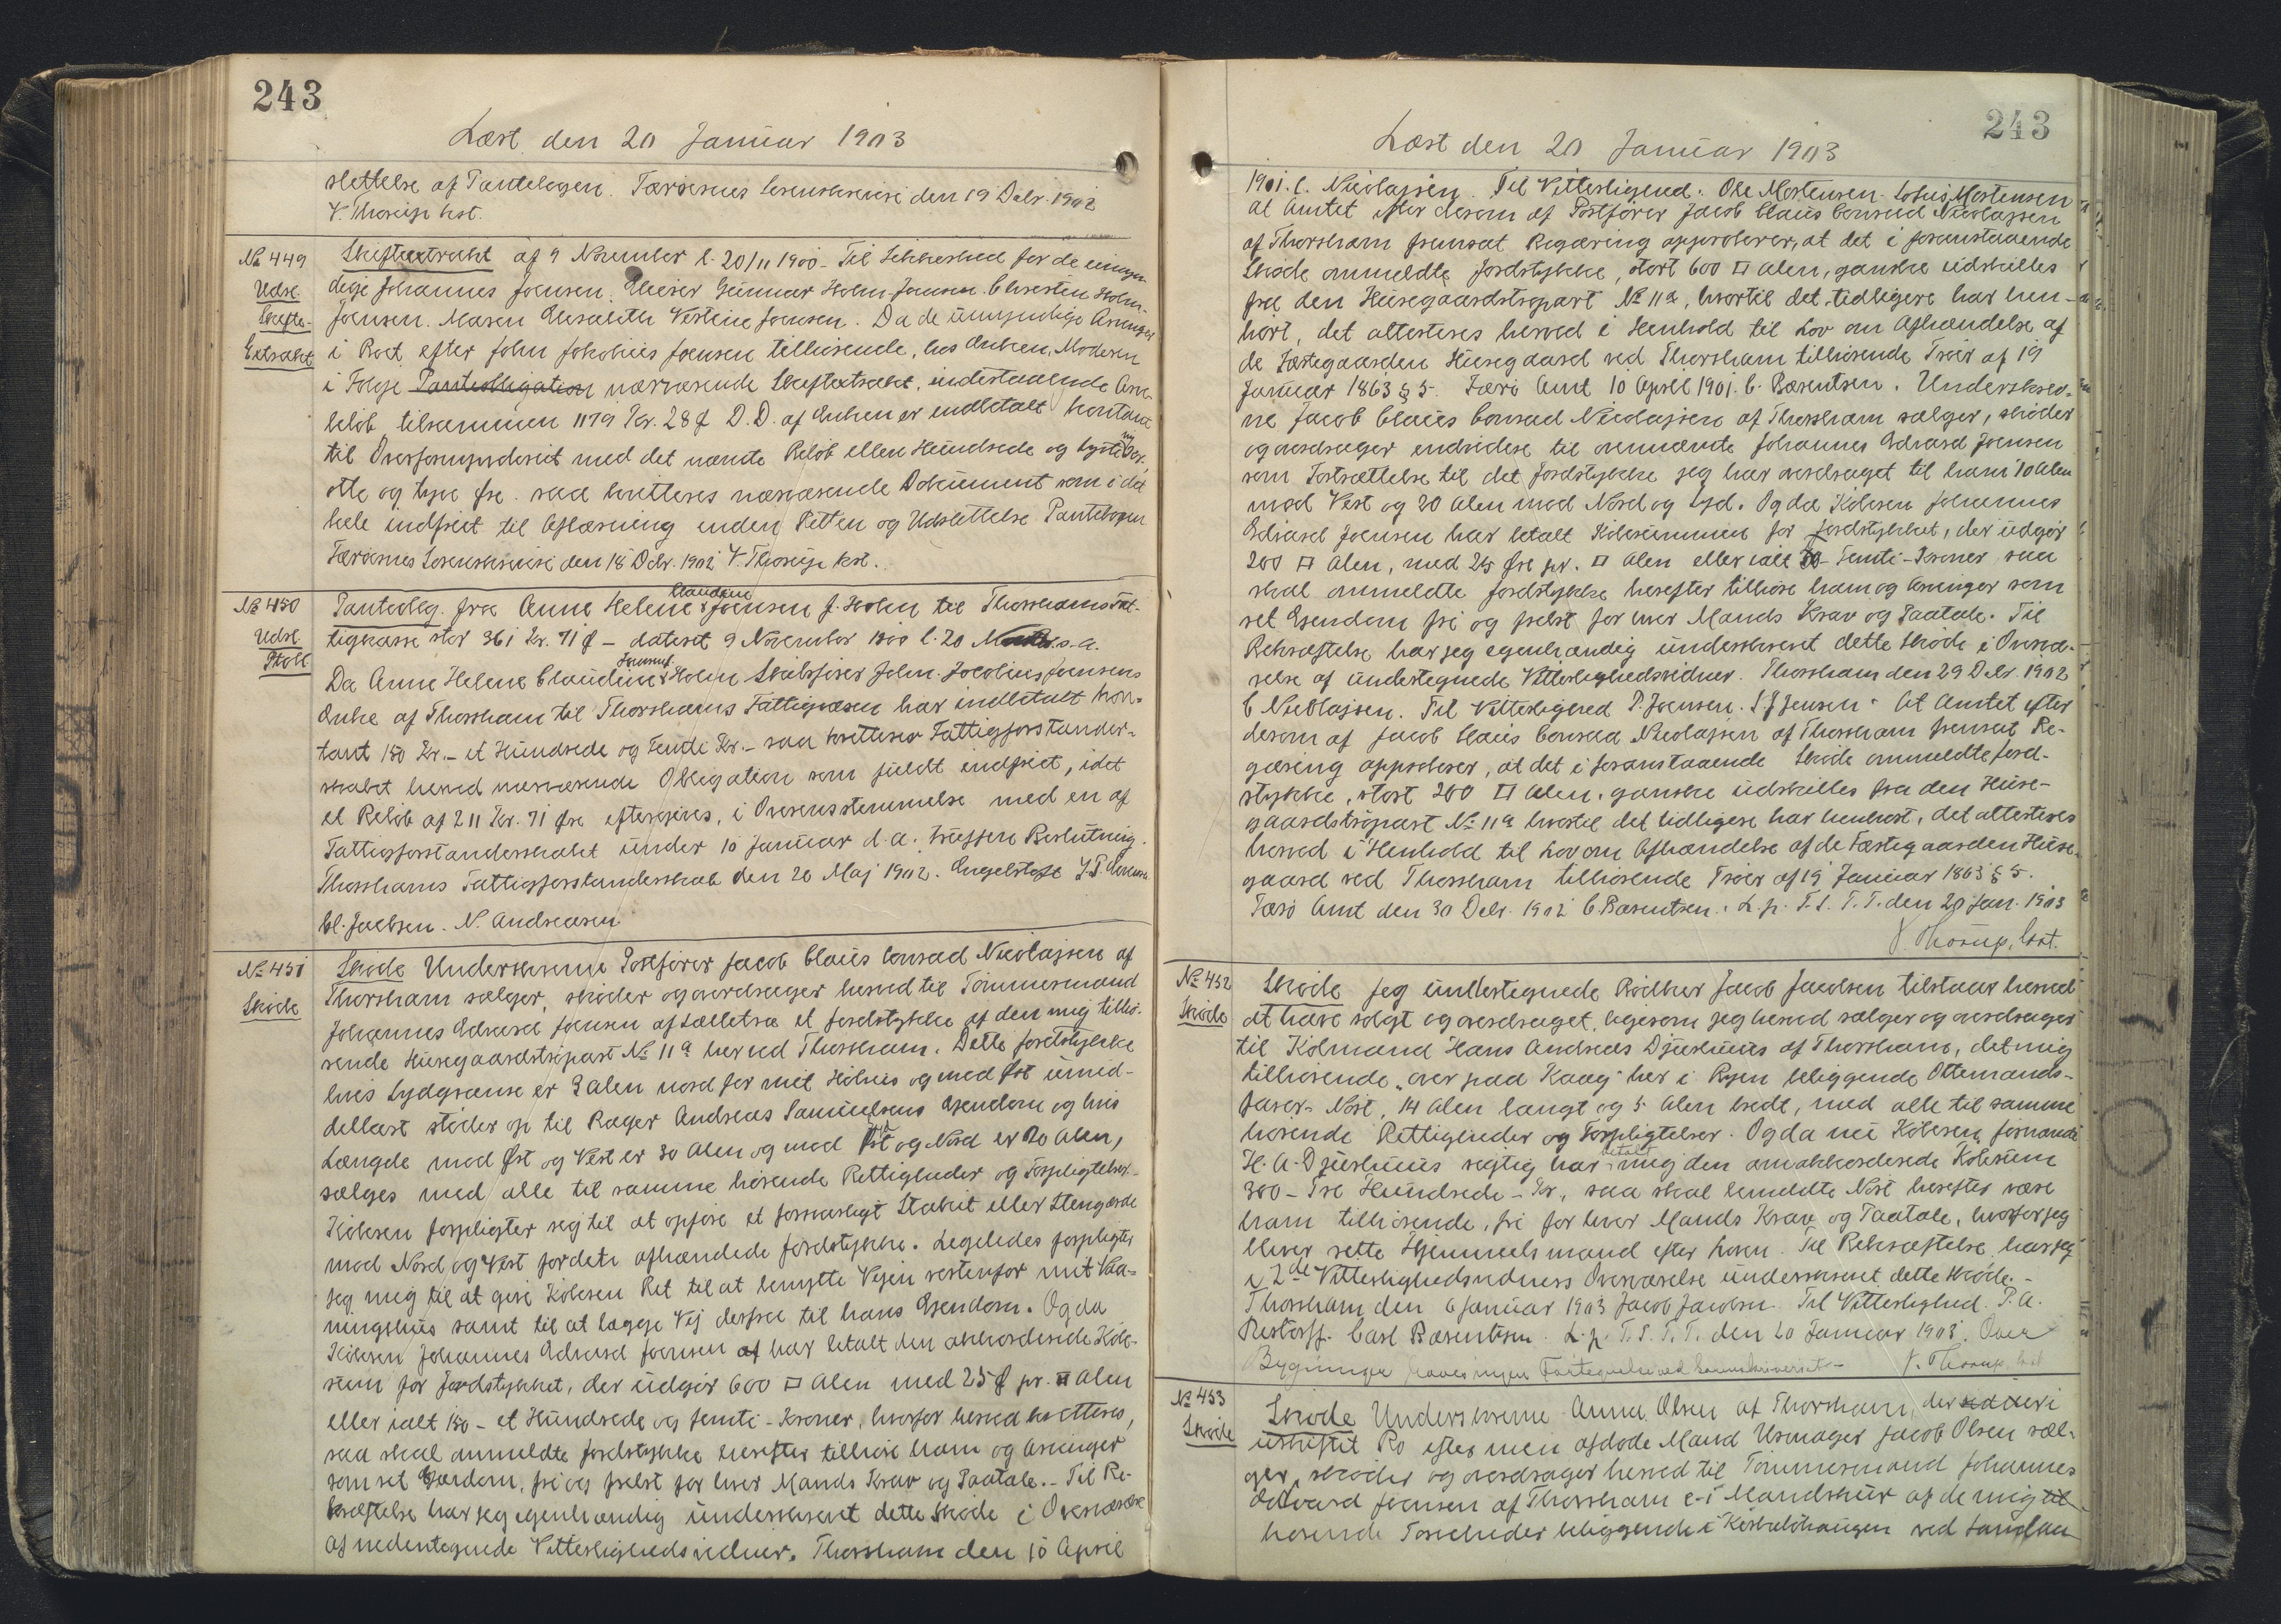 243
Læst den 20 Januar 1903
slettelse af Pantebogen. Færøernes Sorenskriveri den 19 Debr. 1902
V. Thorup kst.
№ 449
Udsl.
Skifte-
Extrakt
Skifteextrakt af 9 November l. 20/11 1900 - Til Sikkerhed for de umyn-
dige Johannes Joensen. Elieser Gunnar Holm Joensen. Chresten Holm-
Joensen. Maren Elisabeth Vestine Joensen. Da de umyndige Arvinger
i Boet efter John Jokobius Joensen tilhørende, hos Enken, Moderen
i Følge Panteobligation nærværende Skifteextrakt, indestaaende Arve-
beløb tilsammen 1179 Kr. 28 Ø D.D. af Enken er indbetalt kontant
til Overformynderiet med det nævnte Beløb ellen Hundrede og
otte og tyve Øre. saa kvitteres nærværende Dokument som i det
hele indfriet til Aflæsning inden Retten og Udslettelse Pantebogen
Færøernes Sorenskriveri den 18 Debr. 1902 V. Thorup kst.
№ 450
Udsl.
Pkobl
Panteoblg. fra Anne Helene Claudine Joensen f. Holm til Thorshavns Fat-
tigkasse stor 361 Kr. 71 Ø - dateret 9 November 1900 l. 20 s. A.
Da Anne Helene Claudine Joensen f. Holm Skibsfører John Jocobius Joensens
Enke af Thorshavn til Thorshavns Fattigvæsen har indbetalt kon-
tant 150 Kr. - et Hundrede og Femti Kr. - saa kvitterer Fattigforstander-
skabet herved nærværende Obligation som fuldt indfriet, idet
et Beløb af 211 Kr. 71 Øre eftergives, i Overensstemmelse med en af
Fattigforstanderskabet under 10 Januar d. A. truffen Beslutning.
Thorshavns Fattigforstanderskab den 20 Maj 1902. Engelstoft J. P.
Cl. Jacbsen. N. Andreasen
№ 451
Skøde
Skøde Underskrevne Postfører Jacob Claus Conrad Nicolajsen af
Thorshavn sælger, skøder og overdrager herved til Tømmermand
Johannes Edvard Joensen af Selletræ et Jordstykke af den mig tilhø-
rende Husegaardstrøpart № 11a her ved Thorshavn. Dette Jordstykke
hvis Sydgrænse er 3 Alen nord for mit Hølhus og mod Øst umid-
delbart støder op til Bager Andreas Samuelsens Ejendom og hvis
Længde mod Øst og Vest er 30 Alen og mod Syd og Nord er 20 Alen,
sælges med alle til samme hørende Rettigheder og Forpligtelser.
Køberen forpligter sig til at opføre et forsvarligt Stakit eller Stengærde
mod Nord og Vest for dette afhændede Jordstykke. Ligeledes forpligter
jeg mig til at give Køberen Ret til at benytte Vejen vestenfor mit Vaa-
ningshus samt til at lægge Vej derfra til hans Ejendom. Og da
Køberen Johannes Edvard Joensen af har betalt den akkorderede Købe-
sum for Jordstykket, der udgør 600 □ Alen med 25 Ø pr. □ Alen
eller ialt 150 - et Hundrede og femti - Kroner, hvorfor herved kvitteres,
saa skal anmeldte Jordstykke herefter tilhøre ham og Arvinger
som ret Ejendom, fri og frelst for hver Mands Krav og Paatale. - Til Be-
kræftelse har jeg egenhændig underskrevet dette Skøde i Overværelse
af nedentegnede Vitterlighedsvidner. Thorshavn den 10 April
243
Læst den 20 Januar 1903
1901. C. Nicolajsen. Til Vitterlighed. Ole Mortensen. Mortensen
at Amtet efter derom af Postfører Jacob Claus Conrad Nicolajsen
af Thorshavn fremsat Begæring approberer, at det i foranstaaende
Skøde ommeldte Jordstykke, stort 600 □ Alen, ganske udskilles
fra den Husegaardstrøpart № 11a, hvortil det tidligere har hen-
hørt, det attesteres herved i Henhold til Lov om Afhændelse af
de Fæstegaarden Husegaard ved Thorshavn tilhørende Trøer af 19
Januar 1863 § 5. Færø Amt 10 April 1901. C. Bærentsen. Underskrev-
ne Jacob Claus Conrad Nicolajsen af Thorshavn sælger, skøder
og overdrager endvidere til ovennævnte Johannes Edvard Joensen
som Fortsættelse til det Jordstykke jeg har overdraget til ham 10 Alen
mod Vest og 20 Alen mod Nord og Syd. Og da Køberen Johannes
Edvard Joensen har betalt Købesummen for Jordstykket, der udgør
200 □ Alen, med 25 Øre pr. □ Alen eller ialt 50 - Femti - Kroner saa
skal ommeldte Jordstykke herefter tilhøre ham og Arvinger som
ret Ejendom fri og frelst for hver Mands Krav og Paatale. Til
Bekræftelse har jeg egenhændig underskrevet dette Skøde i Overvæ-
relse af undertegnede Vitterlighedsvidner. Thorshavn den 29 Debr. 1902
C Nicolajsen. Til Vitterlighed P. Joensen. S. J Jensen. At Amtet efter
derom af Jacob Claus Conrad Nicolajsen af Thorshavn fremsat Be-
gæring approberer, at det i foranstaaende Skøde ommeldte Jord-
stykke, stort 200 □ Alen, ganske udskilles fra den Huse-
gaardstrøpart № 11a hvortil det tidligere har henhørt, det attesteres
herved i Henhold til Lov om Afhændelse af de Fæstegaarden Huse-
gaard ved Thorshavn tilhørende Trøer af 19 Januar 1863 § 5.
Færø Amt den 30 Debr. 1902 C Bærentsen. L. p. T. S. T. T. den 20 Jan. 1903
V. Thorup, kst.
№ 452
Skøde
Skøde Jeg undertegnede Rødker Jacob Jacobsen tilstaar herved
at have solgt og overdraget, ligesom jeg herved sælger og overdrager
til Købmand Hans Andreas Djurhuus af Thorshavn, det mig
tilhørende „over paa Kaag" her i Byen beliggende Ottemands-
farer- Nøst, 14 Alen langt og 5 Alen bredt, med alle til samme
hørende Rettigheder og Forpligtelser. Og da nu Køberen fornævnte
H. A. Djurhuus rigtig har betalt mig den omakkorderede Købesum
300 - Tre Hundrede - Kr., saa skal bemeldte Nøst herefter være
ham tilhørende, fri for hver Mands Krav og Paatale, hvorfor jeg
bliver rette Hjemmelsmand efter Loven. Til Bekræftelse har jeg
i 2de Vitterlighedsvidners Overværelse underskrevet dette Skøde. -
Thorshavn den 6 Januar 1903 Jacob Jacobsen. Til Vitterlighed. P. A.
Restorff. Carl Bærentsen. L. p. T. S. T. T. den 20 Januar 1903. Over
Bygninger haves ingen Fortegnelse ved Sorenskriveriet - V. Thorup, kst
№ 453
Skøde
Skøde Underskrevne Anna Olsen af Thorshavn, der sidder i
uskiftet Bo efter min afdøde Mand Urmager Jacob Olsen sæl-
ger, skøder og overdrager herved til Tømmermand Johannes
Edvard Joensen af Thorshavn e-i Mandskur af de mig til
hørende Torvelunder beliggende i ved